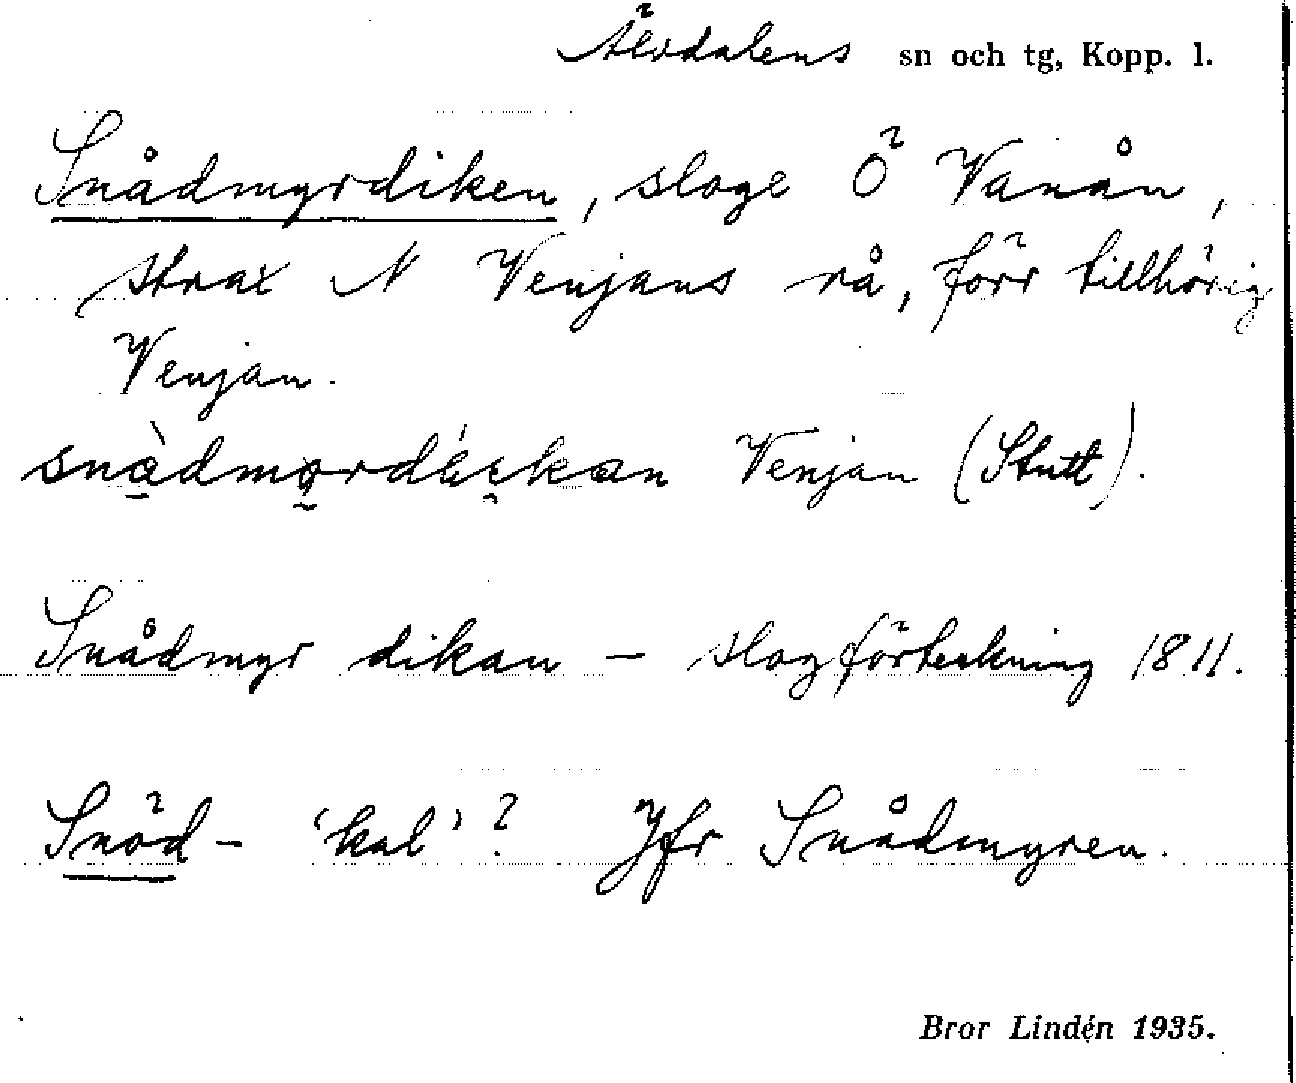 Älvdalens sn och tg, Kopp. l.
Snådmyrdiken, sloge Ö Vanån,
strax N Venjans rå, förr tillhörig
Venjan.
Venjan (Stutt).
Snådmyr dikan – slogförteckning 1811.
Snöd- 'kal'? Jfr Snådmyren.
Bror Lindén 1935.